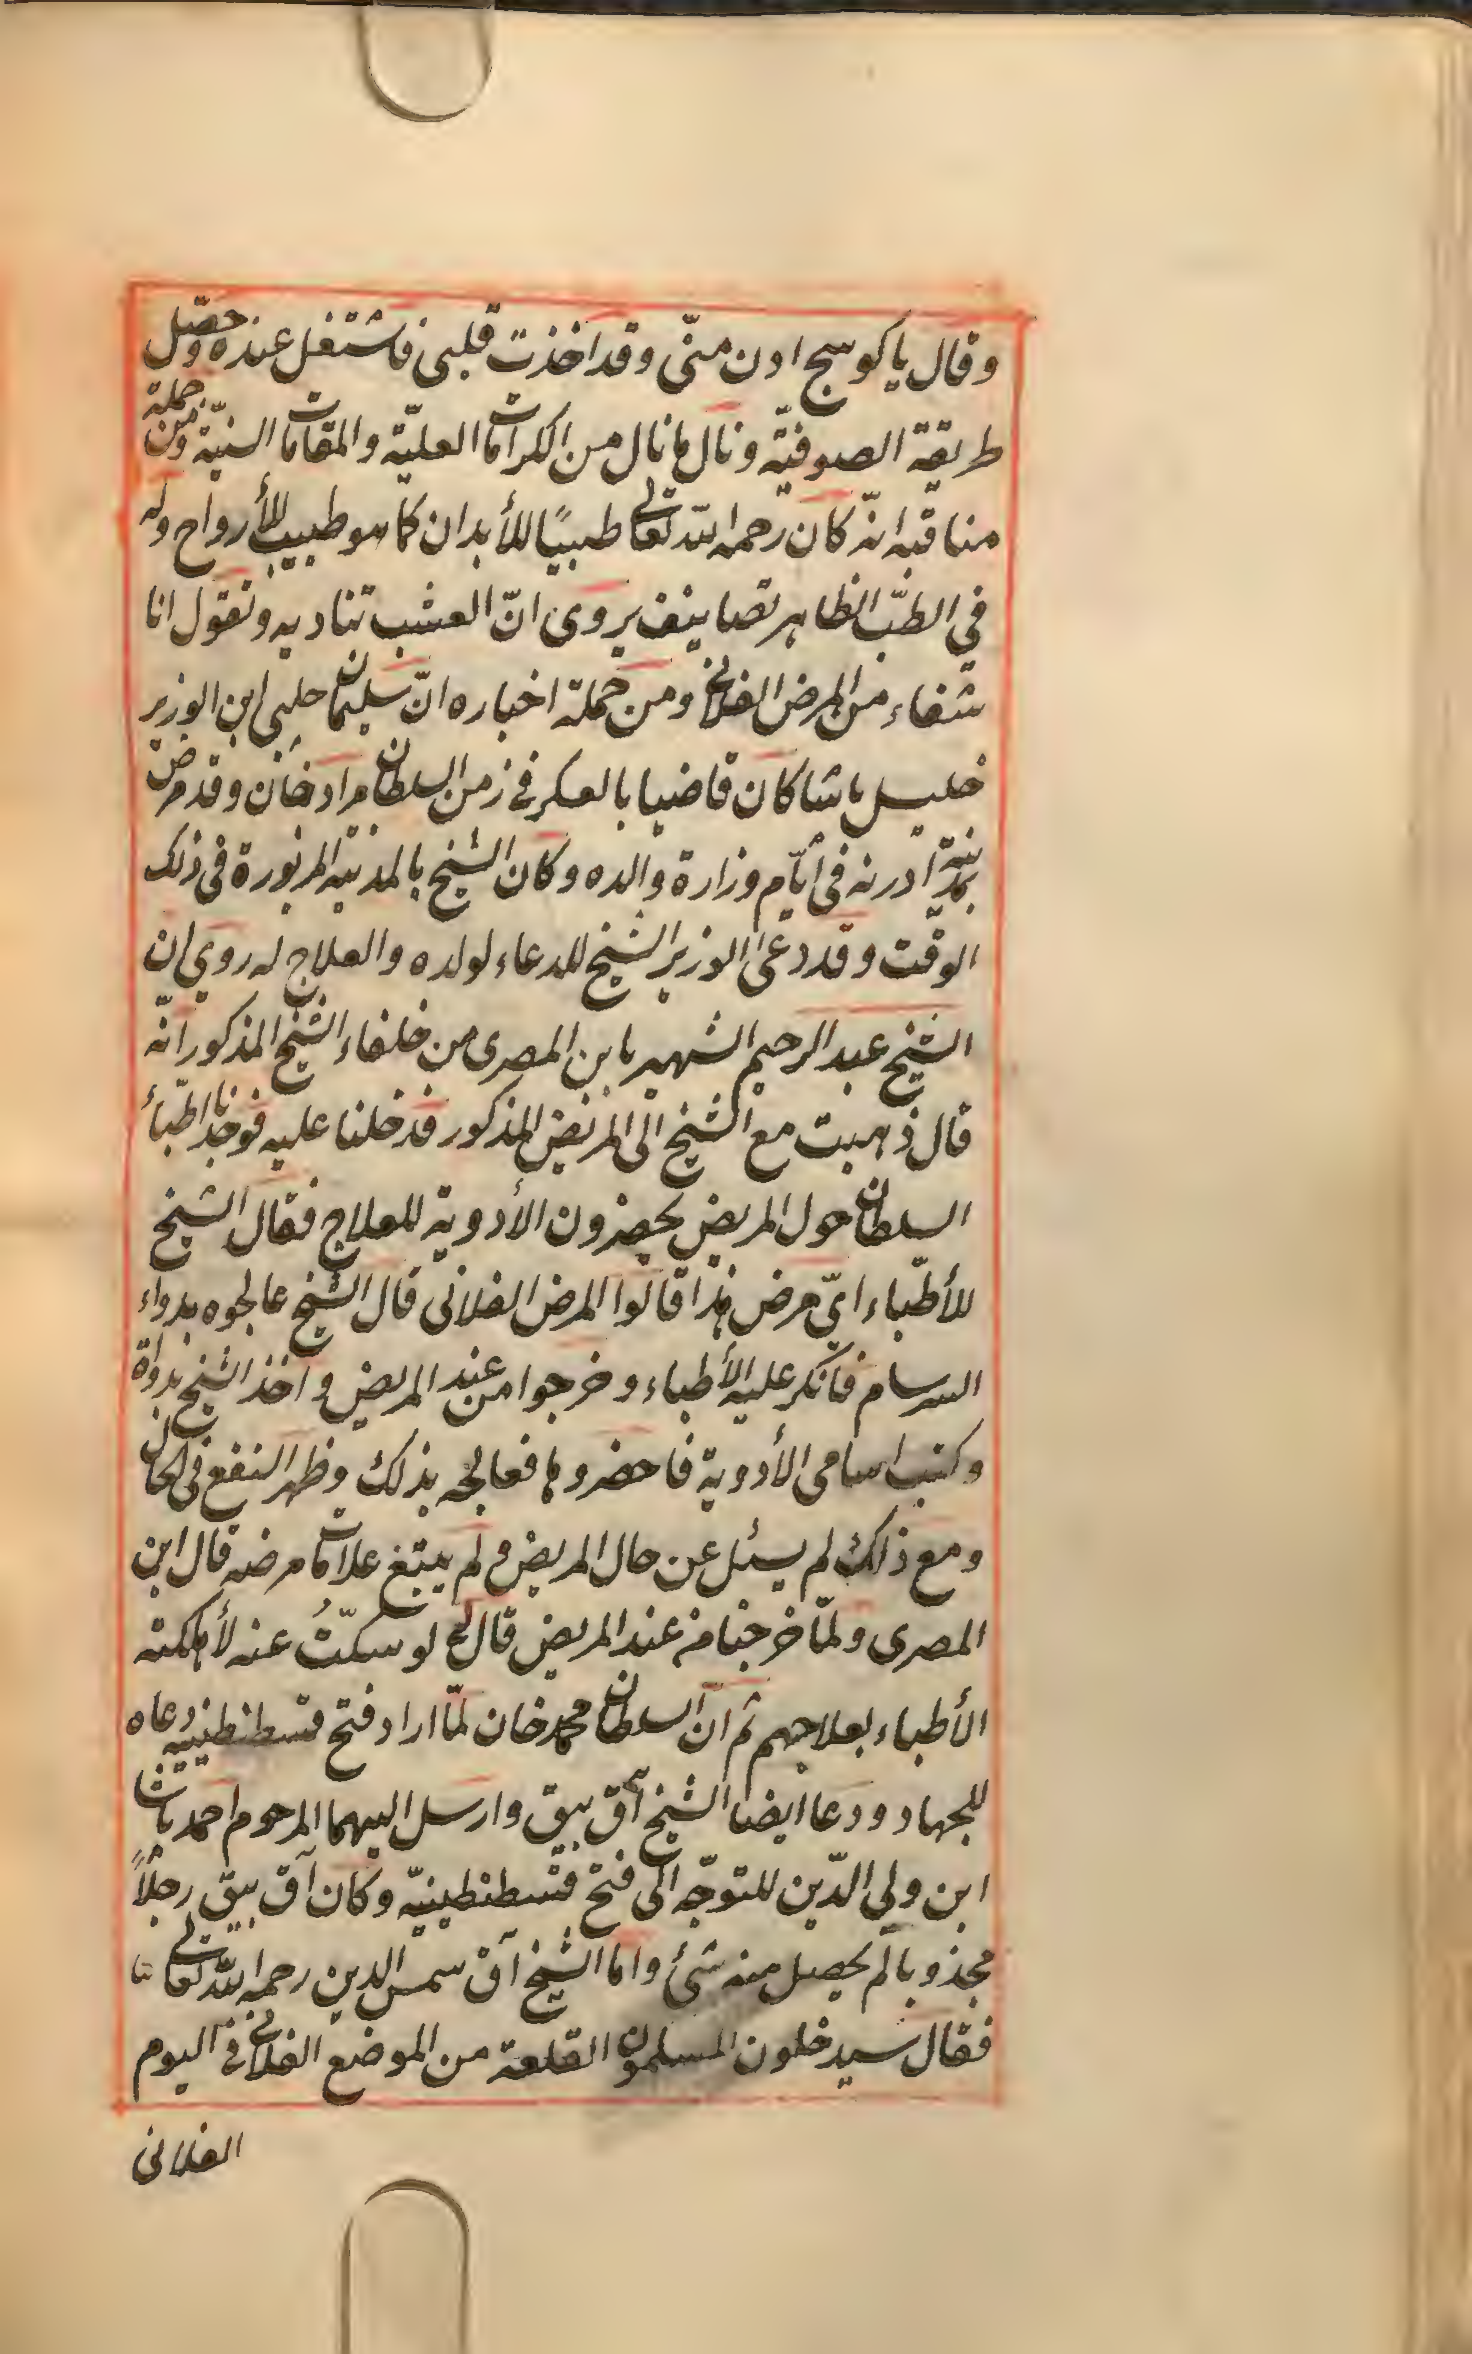 وقال يا كوسج ادن منّى وقد اخذت قلبى فاشتغل عنده وحصّل
طريقة الصوفيّة ونال ما نال من الكرامات العليّة والمقامات السنيّة ومن جملة
مناقبه انّه كان رحمه الله تعالى طبيبًا للأبدان كما هو طبيب للأرواح وله
في الطبّ الظاهر تصانيف يروى انّ العشب تناديه وتقول انا
شفاء من المرض الفلانى ومن جملة اخباره انّ سليمان چلبى ابن الوزير
خليل باشا كان قاضيا بالعسكر فى زمن السلطان مراد خان وقد مرض
بمدينة ادرنه فى أيّام وزارة والده وكان الشيخ بالمدينة المزبورة فى ذلك
الوقت وقد دعى الوزير الشيخ للدعاء لولده والعلاج له روى ان
الشيخ عبد الرحيم الشهير بابن المصرى من خلفاء الشيخ المذكور انّه
قال ذهبت مع الشيخ الى المريض المذكور فدخلنا عليه فوجدنا اطبّاء
السلطان حول المريض يحضرون الأدوية للعلاج فقال الشيخ
للأطبّاء ايّ مرض هذا قالوا المرض الفلانى قال الشيخ عالجوه بدواء
السرسام فانكر عليه الأطباء وخرجوا من عند المريض واخذ الشيخ بدواة
وكتب اسامى الأدوية فاحضروها فعالجه بذلك وظهر النفع فى الحال
ومع ذلك لم يسئل عن حال المريض ولم يتبع علامات مرضه قال ابن
المصرى ولمّا خرجنا من عند المريض قال لى لو سكتّ عنه لأهلكته
الأطباء بعلاجهم ثم انّ السلطان محمد خان لمّا اراد فتح قسطنطينيه دعاه
للجهاد ودعا ايضا الشيخ آق بيق وارسل اليهما المرحوم احمد باشا
ابن ولي الدّين للتوجّه الى فتح قسطنطينيّه وكان آق بيق رجلاً
مجذوبا لم يحصل منه شئ واما الشيخ آق شمس الدين رحمه الله تعالى
فقال سيدخلون المسلمون القلعة من الموضع الفلانى فى اليوم
الفلانى